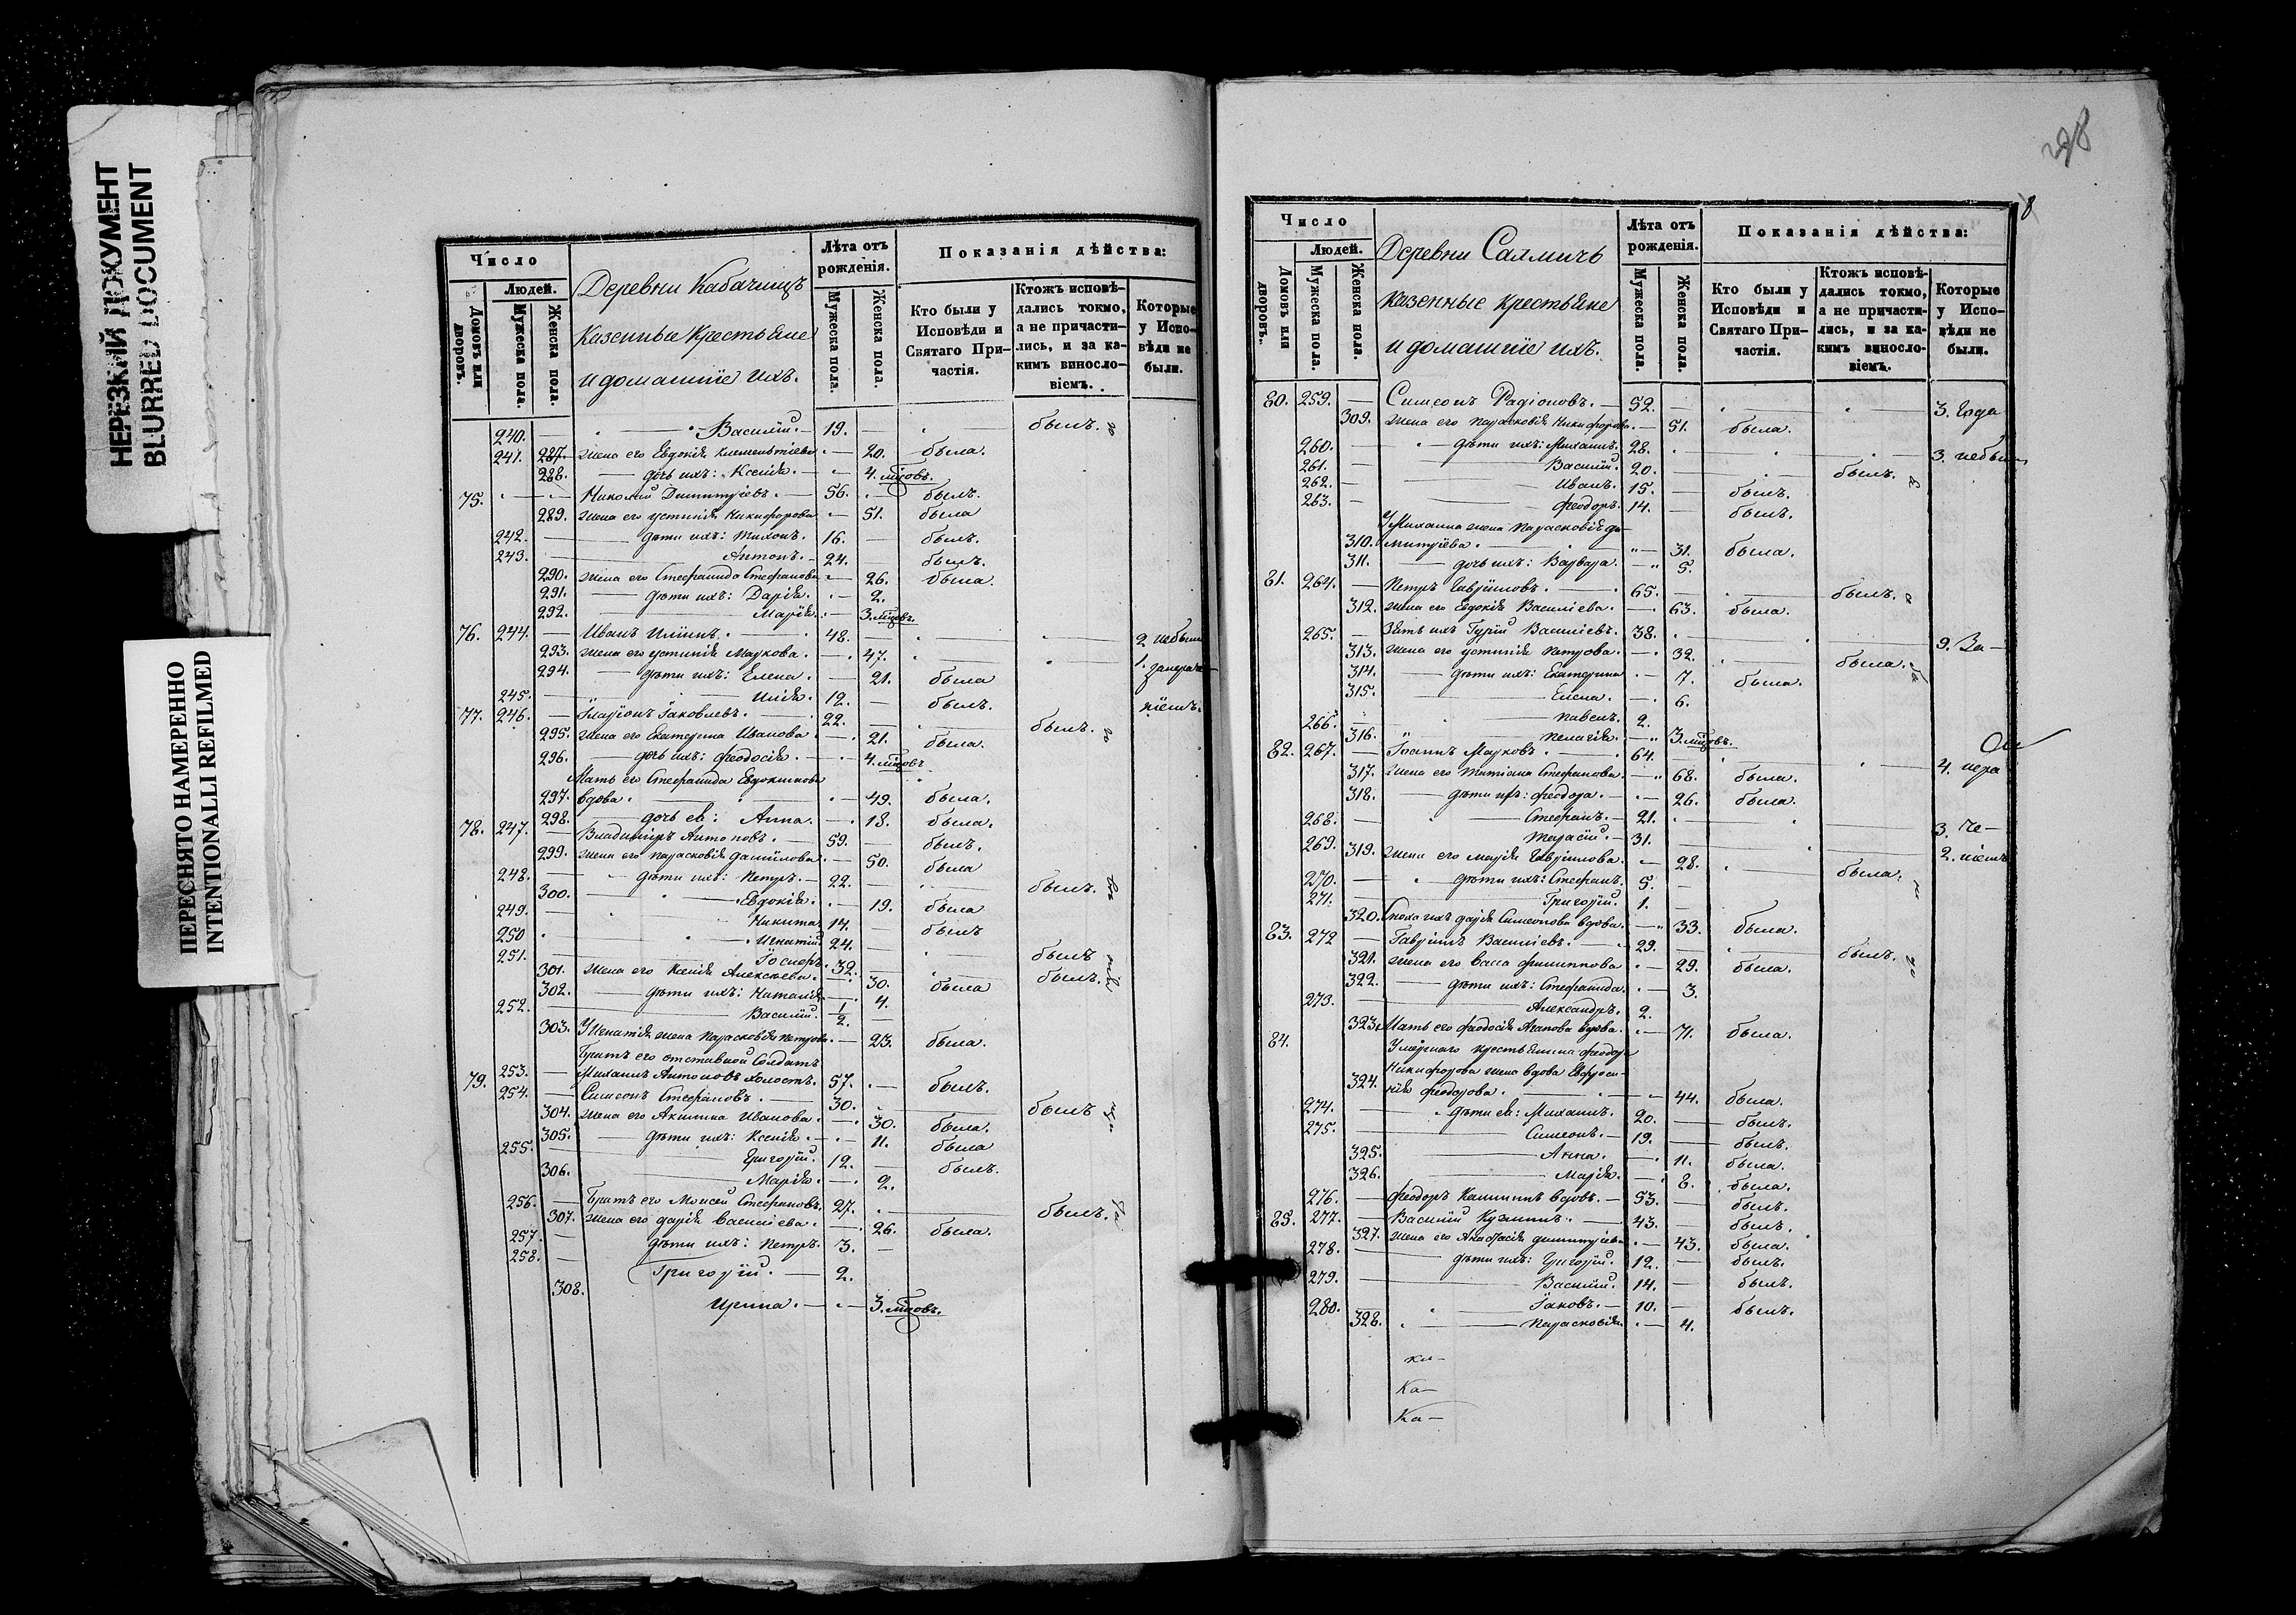 НЕРЕЗКИЙ ДОКУМЕНТ
BLURRED DOCUMENT
ПЕРЕСНЯТО НАМЕРЕННО
INTENTIONALLI REFILMED
Число
Людей.
Домовъ или дворовъ.
Мужеска пола.
Женска пола.
Деревни Кабачищъ
казенные крестьяне
и домашніе ихъ.
Лѣта отъ рожденія.
Мужеска пола.
Женска пола.
Показанія дѣйства:
Кто были у Исповѣди и Святаго При-частія.
Ктожъ исповѣ-дались токмо, а не причасти-лись, и за ка-кимъ винослo-віемъ.
Которые у Испо-вѣди не были.
240. — Василій. — 19. — былъ.
241. 287. жена его Евдокія Климентіева — 20. была.
288. — дочь ихъ: Ксенія. — 4. мѣсѧцовъ.
75. Николай Димитріевъ. — 56. — былъ.
289. жена его Устинія Никифорова — 51. была
242. — дѣти ихъ: Тихонъ. 16. — былъ.
243. — Антонъ. — 24. былъ.
290. жена его Стефанида Стефанова — 26. была.
291. — дѣти ихъ: Дарія. — 2.
292. — Марія. — 3. мѣсѧцовъ.
76. 244. — Иванъ Ильинъ. — 48. — 2 небылъ
293. жена его Устинія Маркова. — 47. — 1. занера-
294. — дѣти ихъ: Елена. — 21. была
245. — Илія. 12. — былъ. ніемъ.
77. 246. — Иларіонъ Іаковлевъ. — 22. — былъ.
295. жена его Екатерина Иванова. — 21. была.
296. — дочь ихъ: Феодосія. — 4. мѣсѧцовъ
Мать его Стефанида Евдокимова
297. вдова. — 49. была.
298. — дочь ея: Анна. — 18. была.
78. 247. — Владимиръ Антоновъ. — 59. — былъ.
299. жена его Парасковія Данилова. — 50. была
248. — дѣти ихъ: Петръ. — 22. — былъ.
300. — Евдокія. — 19. была
249. — Никита. 14. — былъ
250. — Игнатій. 24. — былъ
251. — Іосифъ. 32. — былъ.
301. жена его Ксенія Алексѣева. — 30. была
302. — дѣти ихъ: Наталія — 4.
252. — Василій. 1/2.
303. У Игнатія жена Парасковія Петрова. — 23. была.
Братъ его отставной Солдатъ
253. — Михаилъ Антоновъ холостъ. 57. — былъ.
79. 254. — Симеонъ Стефановъ. — 30. — былъ
304. жена его Акилина Иванова. — 30. была.
305. — дѣти ихъ: Ксенія. — 11. была
255. — Григорій. 12. — былъ.
306. — Марія. — 2.
256. — Братъ его Моисей Стефановъ. 27. — былъ.
307. жена его Дарія Васильева. — 26. была.
257. — дѣти ихъ: Петръ. 3. —
258. — Григорій. — 2.
308. Ирина. — 3. мѣсѧцовъ.
298
8
Число
Людей.
Домовъ или дворовъ.
Мужеска пола.
Женска пола.
Деревни Салмичъ
казенные крестьяне
и домашніе ихъ.
Лѣта отъ рожденія.
Мужеска пола.
Женска пола.
Показанія дѣйства:
Кто были у Исповѣди и Святаго При-частія.
Ктожъ исповѣ-дались токмо, а не причасти-лись, и за ка-кимъ винослo-віемъ.
Которые у Испо-вѣди не были.
80. 259. — Симеонъ Радіоновъ. — 52. — 3. года
309. жена его Парасковія Никифорова. — 51. была.
260. — дѣти ихъ: Михаилъ. 28. — 3. небылъ
261. — Василій. 20. — былъ.
262. — Иванъ. 15. — былъ.
263. — Феодоръ. 14. — былъ.
У Михаила жена Парасковія Ди-
310. митріева. — 31. была.
311. — дочь ихъ: Варвара. — 5.
81. 264. — Петръ Гавриловъ. — 65. — былъ.
312. жена его Евдокія Васильева. — 63. была.
265. — Зять ихъ Гурій Васильевъ. 38. — 9. За-
313. жена его Устинія Петрова. — 32. — была.
314. — дѣти ихъ: Екатерина — 7. была.
315. — Елена. — 6.
266. — Павелъ. 2.
316. — Пелагія. — 3. мѣсѧцовъ.
82. 267. — Іоаннъ Марковъ. — 64. — 4. нера
317. жена его Татіана Стефанова. — 68. была.
318. — дѣти ихъ: Феодора. — 26. была.
268. — Стефанъ. — 21. — 3. че-
269. — Тарасій. — 31. — 2. ніемъ
319. жена его Марія Гаврилова. — 28. — была.
270. — дѣти ихъ: Стефанъ. 5. —
271. — Григорій. 1. —
320. Сноха ихъ Дарія Симеонова вдова. — 33. была.
83. 272 — Гавріилъ Васильевъ. — 29. — былъ.
321. жена его Васса Филиппова — 29. была.
322. — дѣти ихъ: Стефанида. — 3.
273. — Александръ. 2.
323. Мать его Феодосія Агапова вдова. — 71. была.
84. Умершаго крестьянина Феодора
Никифорова жена вдова Евфроси-
324. нія Феодорова. — 44. была.
274. — дѣти ея: Михаилъ. 20. — былъ.
275. — Симеонъ. — 19. — былъ.
325. — Анна. — 11. была.
326. — Марія. — 8. была.
276. — Феодоръ Калининъ вдовъ. — 53. — былъ.
85. 277. — Василій Кузминъ. — 43. — былъ.
327. жена его Анастасія Димитріева — 43. была.
278. — дѣти ихъ: Григорій. 12. — былъ.
279. — Василій. 14. — былъ.
280. — Іаковъ. — 10. — былъ.
328. — Парасковія. — 4.
Ка-
Ка-